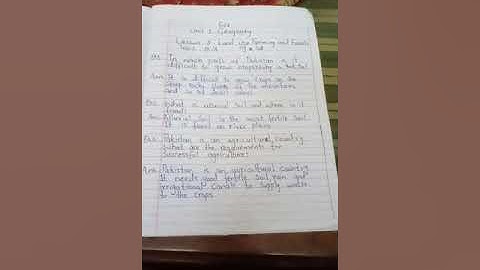 Unit 2 Geography
Lesson: 3 Land use Farming and Forests
Q: In which parts of Pakistan is it
difficult to grow crops
Ans: It is difficult to grow crops on the
steep rocky slopes of the mountains
and in dry desert
Q: What is alluvial soil and where is it
found?
Ans: Alluvial soil is the most fertile soil.
It is found on river plains
Q: Pakistan is an agricultural country
what are the requirements for
successful agriculture?
Ans: Pakistan is an agricultural country
It needs good fertile soil, rain and
irrigational canals to supply water
to the crops